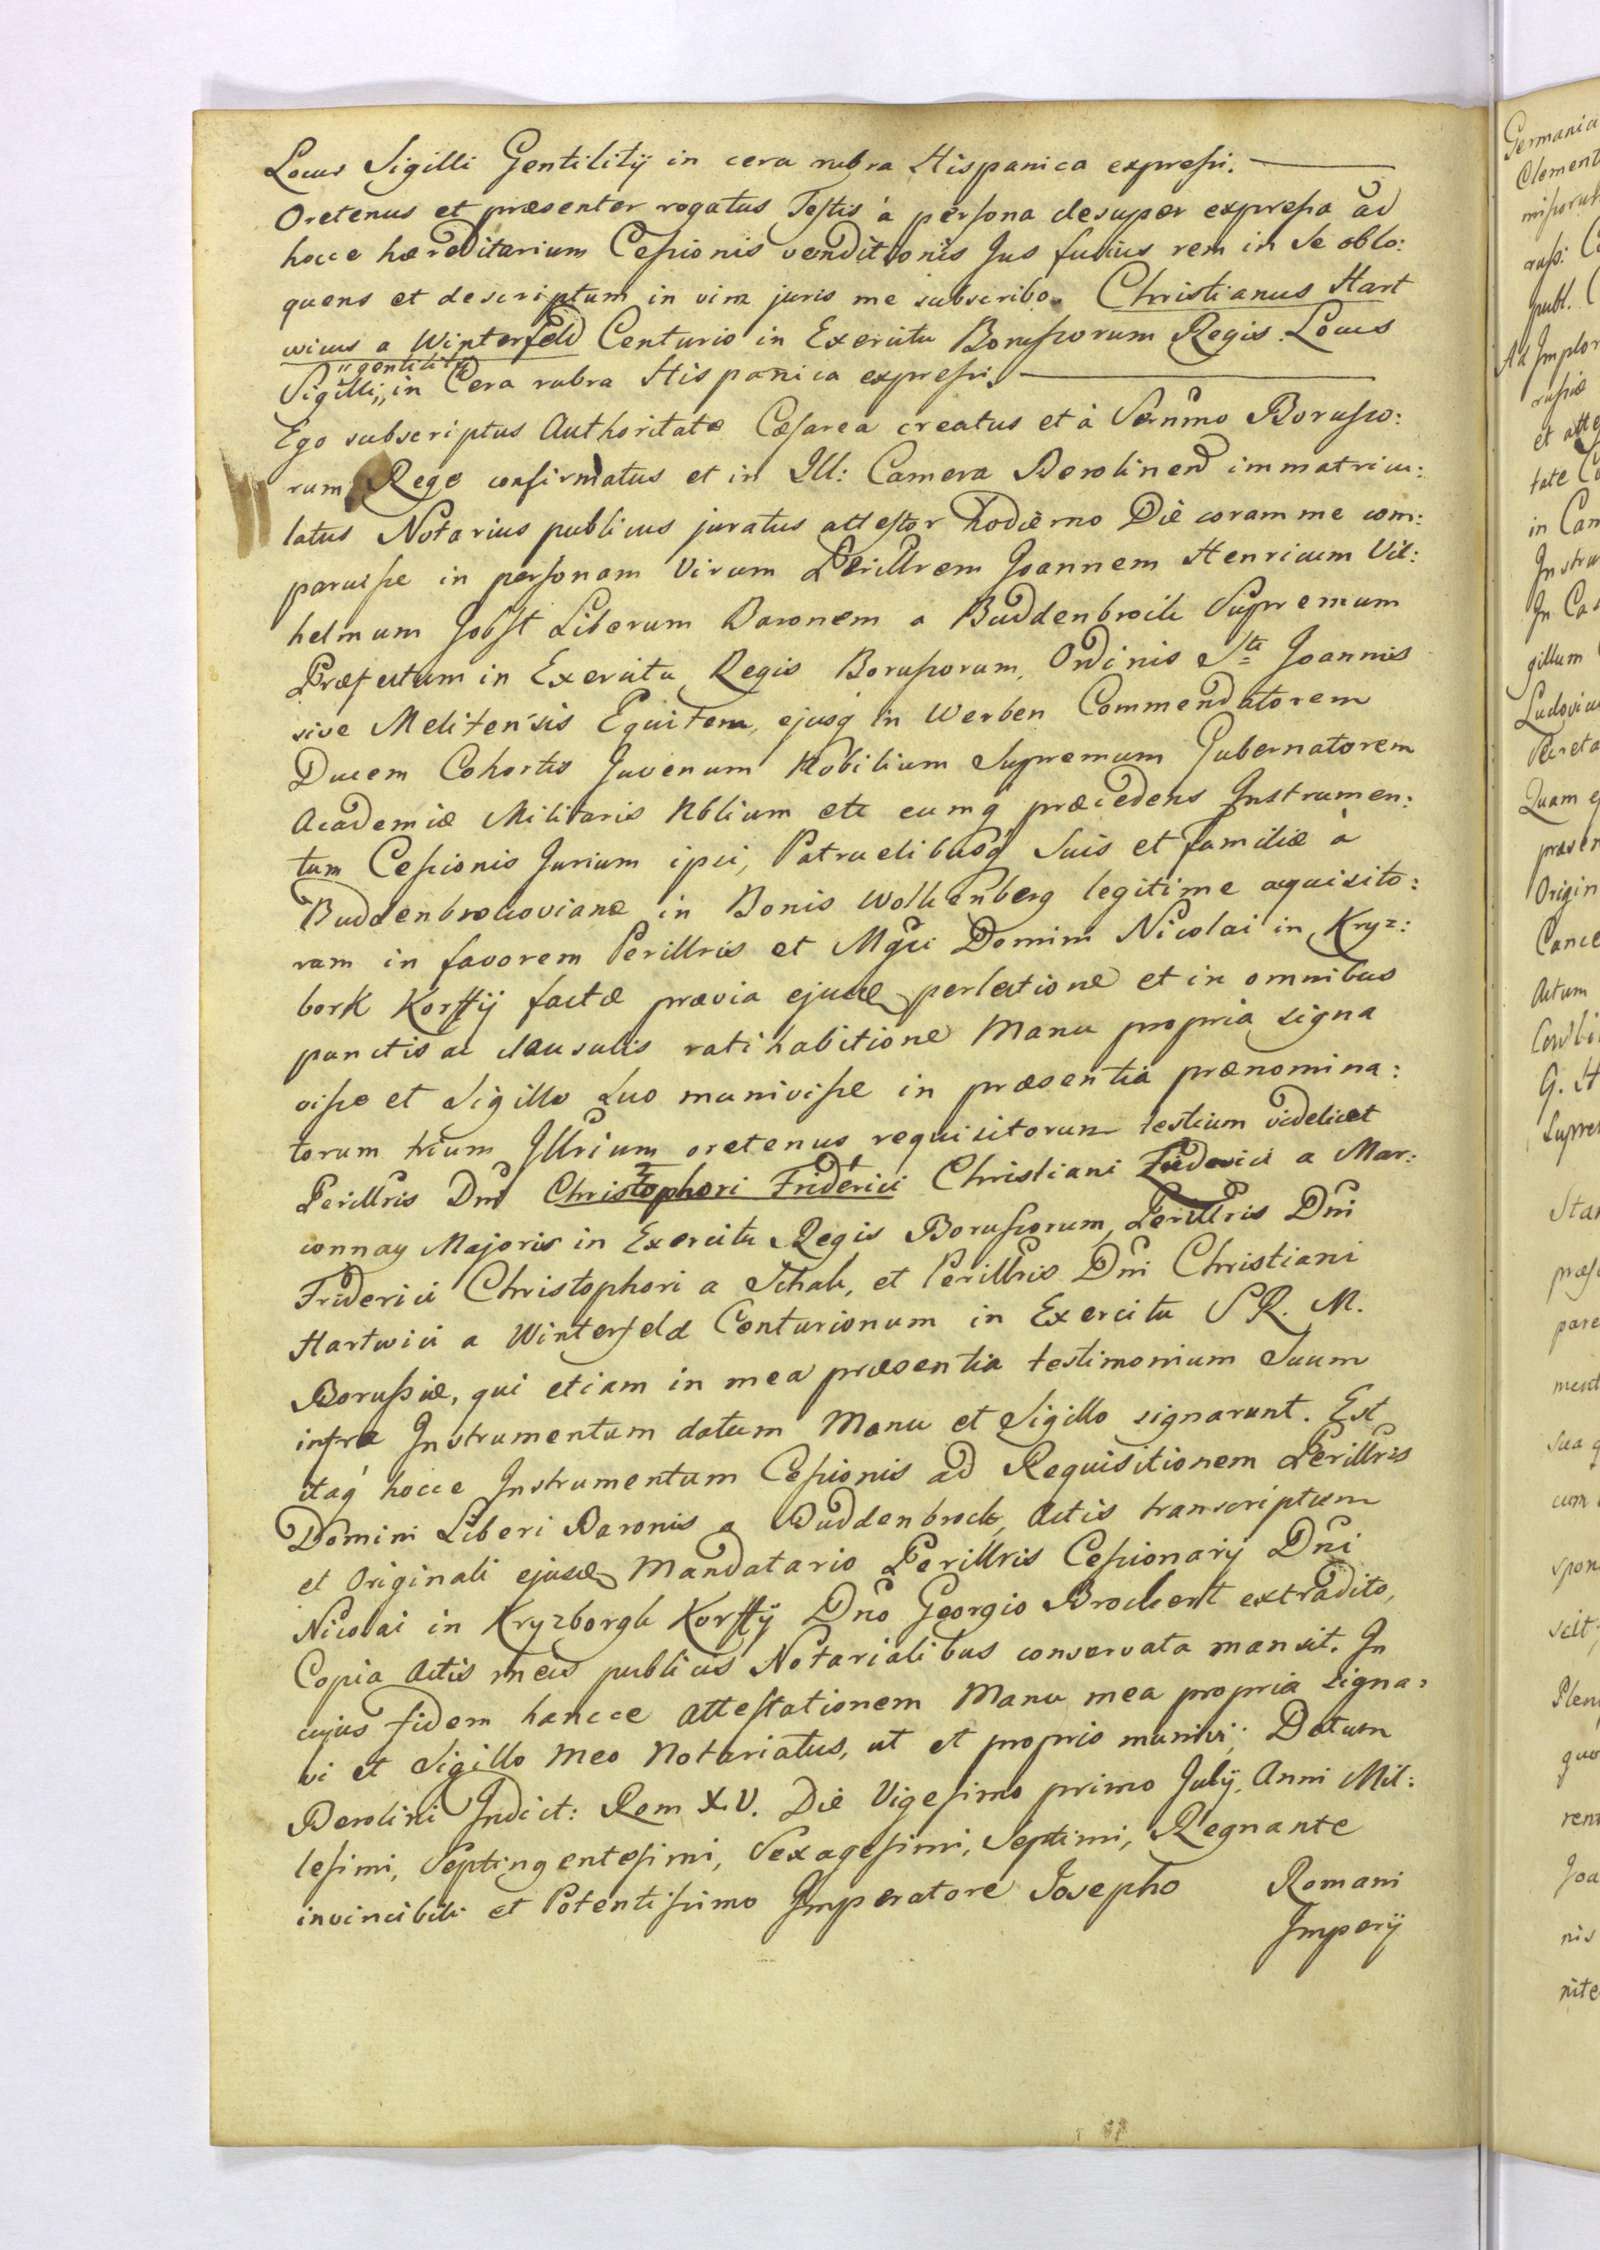 Locus Sigilli Gentilitij in cera rubra Hispanica expreſsi.
Oretenus et præsenter rogatus Teſtis à perſona desuper expreſsa ad
hocce hæreditarium Ceſsionis venditionis Jus fusius rem in se oblo:
quens et descriptum in vim juris me subscribo. Christianus Hart
wicus a Winterfeld Centurio in Exercitu Boruſsorum Regis. Locus
gentilitij
Sigilli,, in Cera rubra Hispanica expreſsi.
Ego subscriptus Authoritate Cæſarea creatus et à Sernmo Boruſso:
rum Rege confirmatus et in Ill: Camera Berolinen immatricu:
latus Notarius publicus juratus atteſtor hodierno Die coram me com:
paruiſse in perſonam Virum Perillrem Joannem Henricum Vil:
helmum Jobſt Liberum Baronem a Buddenbrock Supremum
Præfectum in Exercitu Regis Boruſsorum, Ordinis Sti Joannis
sive Melitensis Equitem, ejusq in Werben Commendatorem
Ducem Cohortis Juvenum Nobilium Supremum Gubernatorem
Academiæ Militaris Nblium etc eumq præcedens Instrumen:
tum Ceſsionis Jurium ipsi, Patruelibusq Suis et familiæ à
Buddenbrockovianæ in Bonis Wolkenberg legitime aquisito:
rum in favorem Perillris et Mgci Domini Nicolai in Kryz:
bork Korffij factæ prævia ejusd perlectione et in omnibus
punctis ac clausulis ratihabitione Manu propria signa
viſse et Sigillo Suo muniviſse in præsentia prænomina:
torum trium Illrium oretenus requisitorum testium videlicet
Perillris Dni Christophori Friderici Christiani Friderici a Mar:
connay Majoris in Exercitu Regis Boruſsorum, Perillris Dni
Friderici Christophori a Schak, et Perillris Dni Christiani
Hartwici a Winterfeld Centurionum in Exercitu S R. M.
Boruſsiæ, qui etiam in mea præsentia testimonium Suum
infra Instrumentum datum Manu et Sigillo signarunt. Est
itaq hocce Instrumentum Ceſsionis ad Requisitionem Perillris
Domini Liberi Baronis a Buddenbrock, Actis transcriptum
et Originali ejusd Mandatario Perillris Ceſsionarij Dni
Nicolai in Kryzborgk Korffij Dno Georgio Brockent extradito,
Copia Actis meis publicis Notarialibus conservata mansit. In
cujus fidem hancce Atteſtationem Manu mea propria signa:
vi et Sigillo Meo Notariatus, ut et proprio munivi; Datum
Berolini Indict: Rom XV. Die Vigeſimo primo Julij. Anni Mil:
leſimi, Septingenteſimi, Sexageſimi, Septimi, Regnante
invincibili et Potentiſsimo Imperatore Josepho Romani
Imperij
Germania
Clement
Ad Implor
ruſsiæ
in Cam
Instru
gillum
Ludovicu
Secreta
Quam
præsen
Origin
Cance
Actum
G. H
Supre